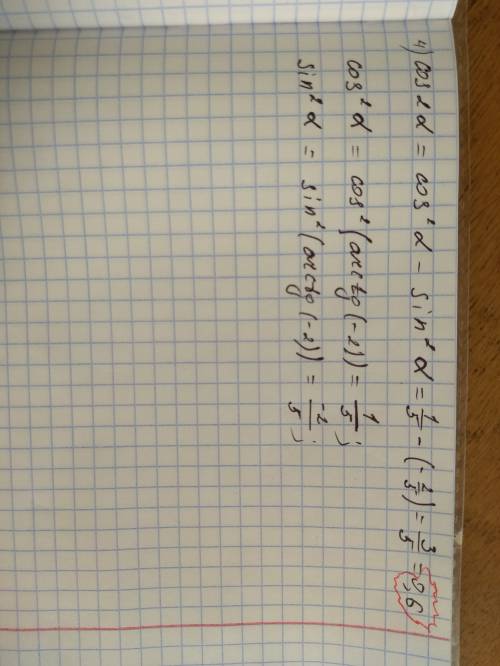 4) cos 2α = cos²α - sin²α = 1/5 - (-2/5) = 3/5 = 0,6
cos²α = cos²(arctg(-2)) = 1/5;
sin²α = sin²(arctg(-2)) = -2/5;